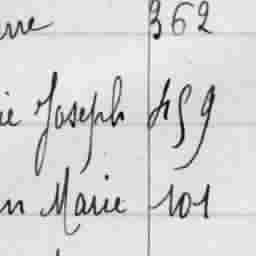 rre 362
ie Joseph 459
n Marie 101